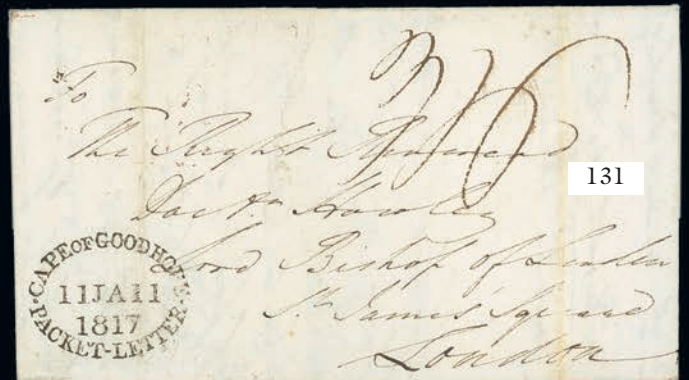 3/6
To
The Right Reverend
Doctr. Howley
Lord Bishop of London
St. James' Square
London
131
CAPE OF GOOD HOPE
11JA11
1817
PACKET-LETTER